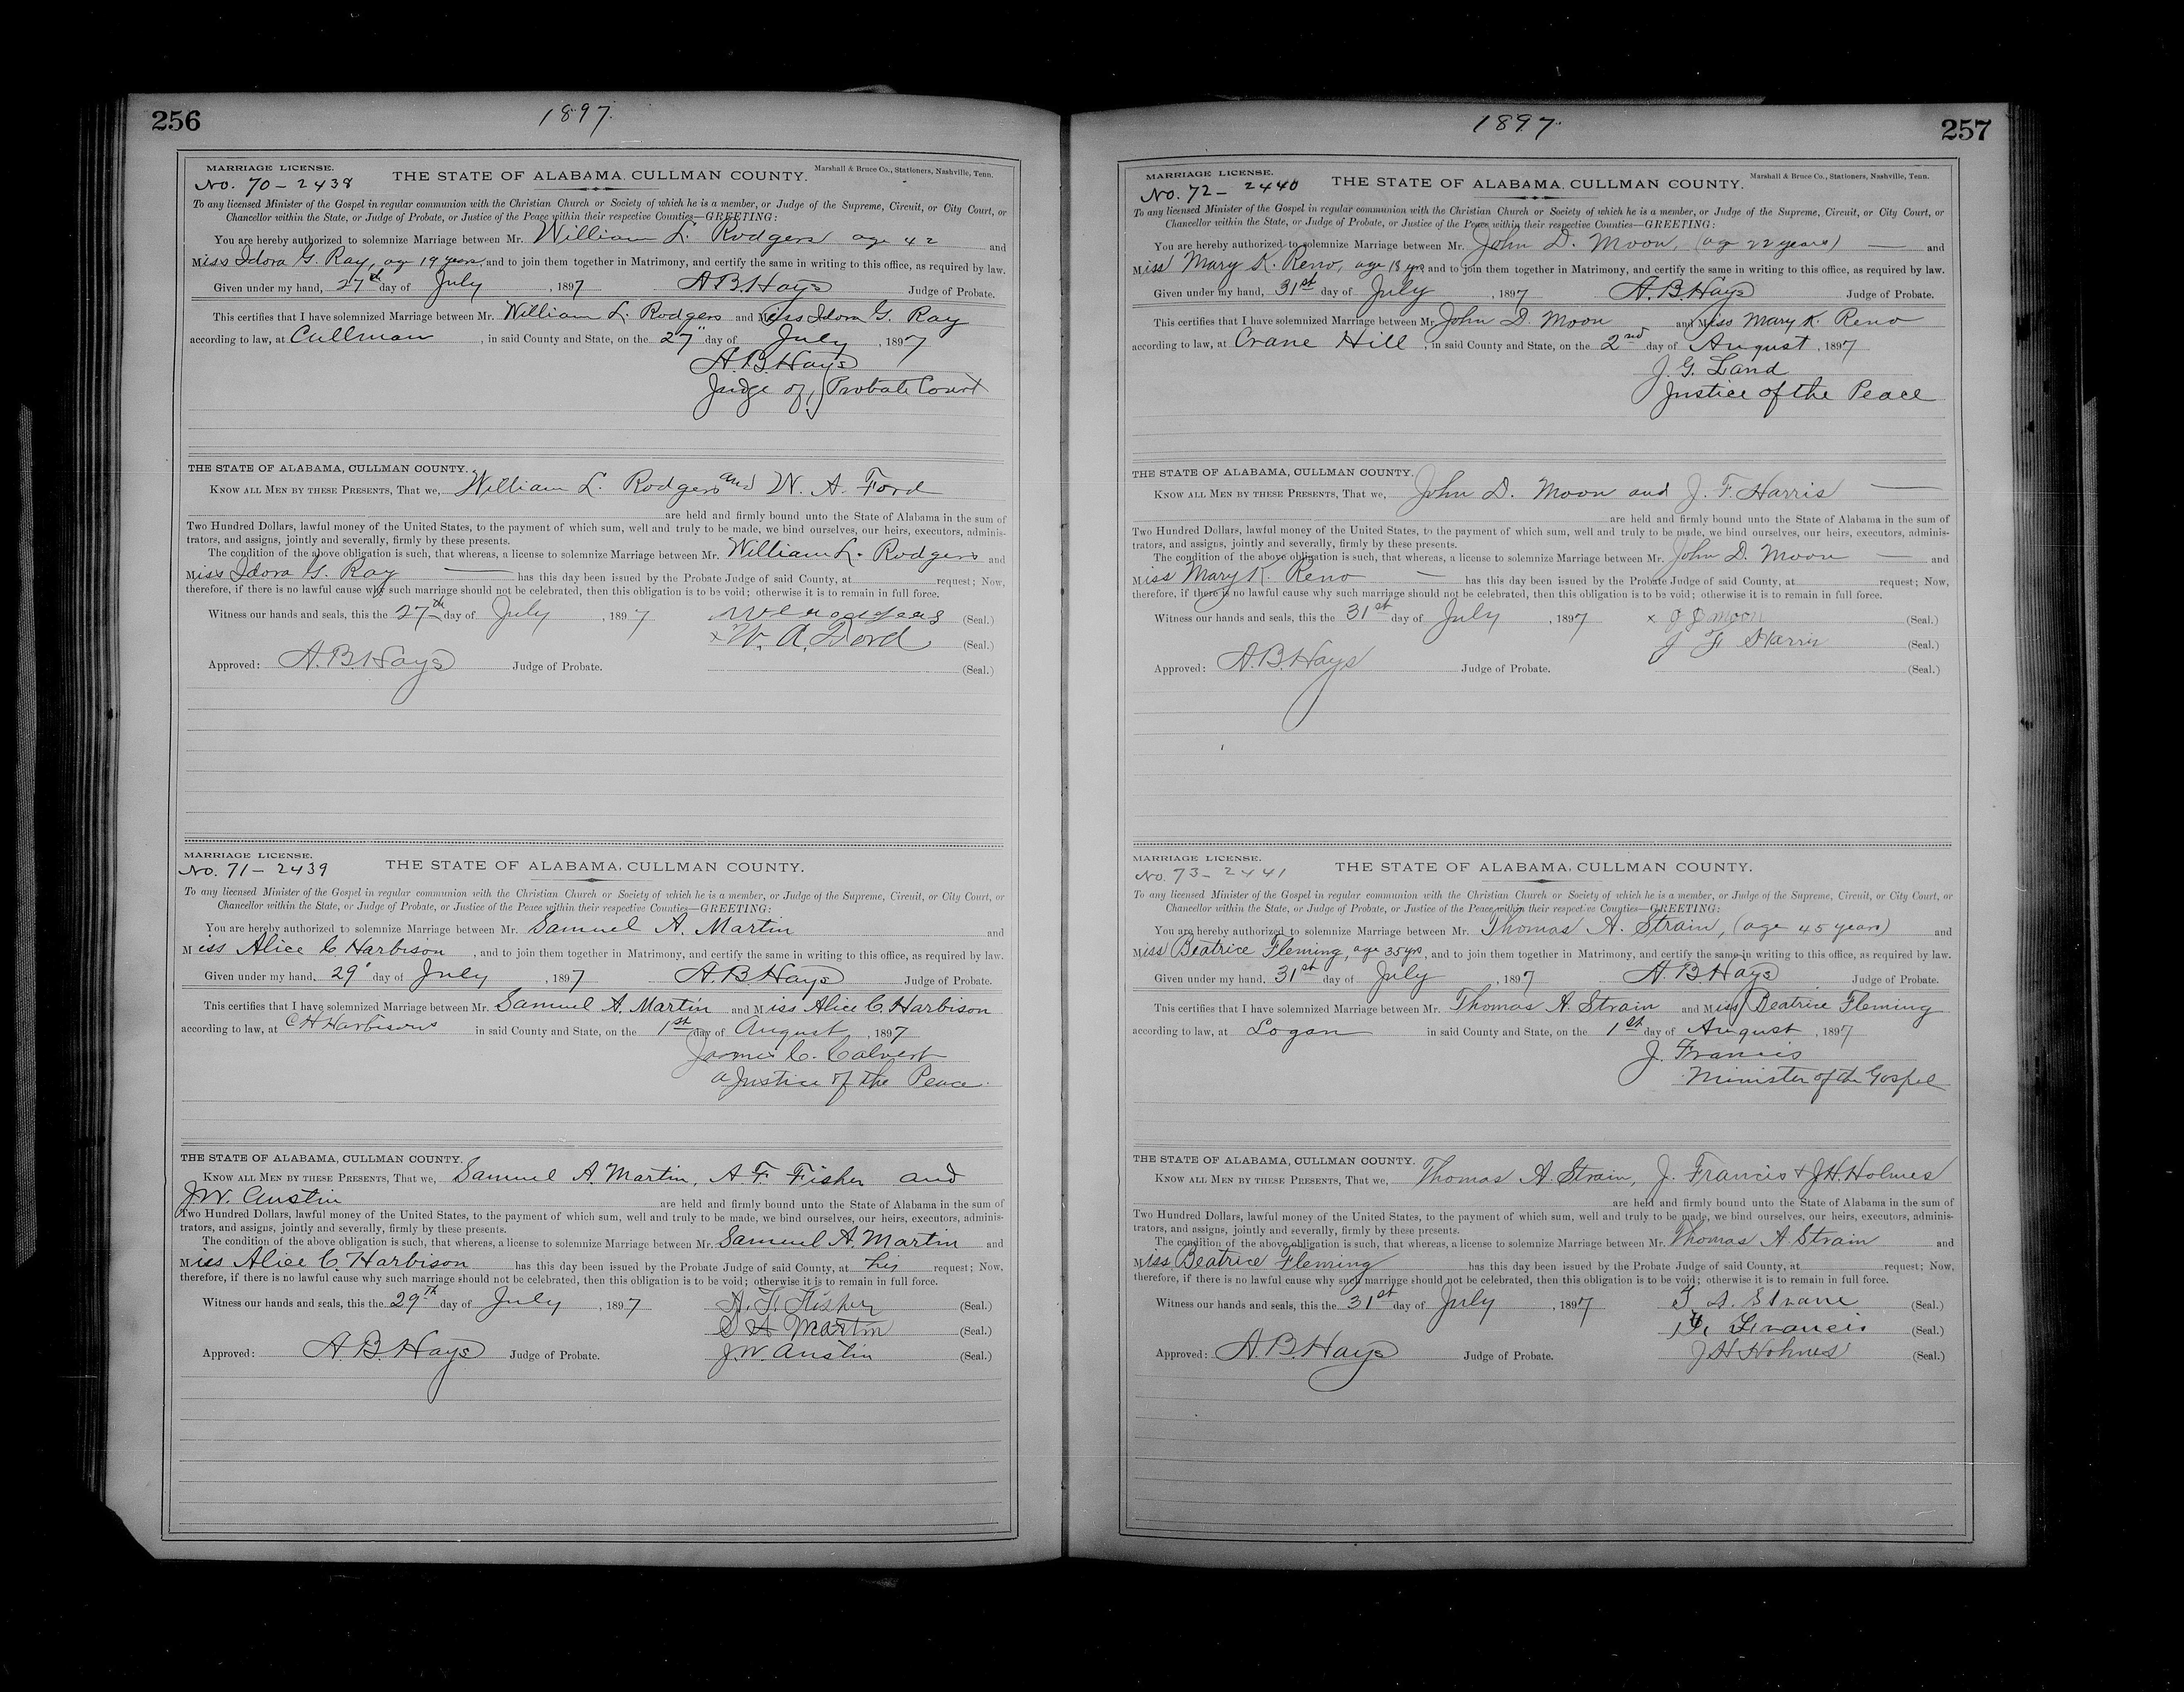 256
1897.
MARRIAGE LICENSE.
No. 70 - 2438
THE STATE OF ALABAMA, CULLMAN COUNTY.
Marshall & Bruce Co., Stationers, Nashville, Tenn.
To any licensed Minister of the Gospel in regular communion with the Christian Church or Society of which he is a member, or Judge of the Supreme, Circuit, or City Court, or
Chancellor within the State, or Judge of Probate, or Justice of the Peace within their respective Counties—GREETING:
You are hereby authorized to solemnize Marriage between Mr. William L. Rodgers age 42 and
Miss Idora G. Ray, age 19 years and to join them together in Matrimony, and certify the same in writing to this office, as required by law.
Given under my hand, 27th day of July, 1897 A.B. Hays Judge of Probate.
This certifies that I have solemnized Marriage between Mr. William L. Rodgers and Miss Idora G. Ray
according to law, at Cullman, in said County and State, on the 27" day of July, 1897
A.B. Hays
Judge of Probate Court
THE STATE OF ALABAMA, CULLMAN COUNTY.
KNOW ALL MEN BY THESE PRESENTS, That we, William L. Rodgers and W. A. Ford
are held and firmly bound unto the State of Alabama in the sum of
Two Hundred Dollars, lawful money of the United States, to the payment of which sum, well and truly to be made, we bind ourselves, our heirs, executors, adminis-
trators, and assigns, jointly and severally, firmly by these presents.
The condition of the above obligation is such, that whereas, a license to solemnize Marriage between Mr. William L. Rodgers and
Miss Idora G. Ray — has this day been issued by the Probate Judge of said County, at request; Now,
therefore, if there is no lawful cause why such marriage should not be celebrated, then this obligation is to be void; otherwise it is to remain in full force.
Witness our hands and seals, this the 27th day of July, 1897 (Seal.)
x W. A. Ford (Seal.)
Approved: A.B. Hays Judge of Probate. (Seal.)
MARRIAGE LICENSE.
No. 71 - 2439
THE STATE OF ALABAMA, CULLMAN COUNTY.
To any licensed Minister of the Gospel in regular communion with the Christian Church or Society of which he is a member, or Judge of the Supreme, Circuit, or City Court, or
Chancellor within the State, or Judge of Probate, or Justice of the Peace within their respective Counties—GREETING:
You are hereby authorized to solemnize Marriage between Mr. Samuel A. Martin and
Miss Alice C. Harbison, and to join them together in Matrimony, and certify the same in writing to this office, as required by law.
Given under my hand, 29" day of July, 1897 A.B. Hays Judge of Probate.
This certifies that I have solemnized Marriage between Mr. Samuel A. Martin and Miss Alice C. Harbison
according to law, at C H Harbisons in said County and State, on the 1st day of August, 1897
James C. Calvert
a Justice of the Peace.
THE STATE OF ALABAMA, CULLMAN COUNTY.
KNOW ALL MEN BY THESE PRESENTS, That we, Samuel A. Martin, A. F. Fisher and
J.W. Austin are held and firmly bound unto the State of Alabama in the sum of
Two Hundred Dollars, lawful money of the United States, to the payment of which sum, well and truly to be made, we bind ourselves, our heirs, executors, adminis-
trators, and assigns, jointly and severally, firmly by these presents.
The condition of the above obligation is such, that whereas, a license to solemnize Marriage between Mr. Samuel A. Martin and
Miss Alice C. Harbison has this day been issued by the Probate Judge of said County, at his request; Now,
therefore, if there is no lawful cause why such marriage should not be celebrated, then this obligation is to be void; otherwise it is to remain in full force.
Witness our hands and seals, this the 29th day of July, 1897 A. F. Fisher (Seal.)
S A Martin (Seal.)
Approved: A.B. Hays Judge of Probate. J.W. Austin (Seal.)
257
1897.
MARRIAGE LICENSE.
No. 72 - 2440
THE STATE OF ALABAMA, CULLMAN COUNTY.
Marshall & Bruce Co., Stationers, Nashville, Tenn.
To any licensed Minister of the Gospel in regular communion with the Christian Church or Society of which he is a member, or Judge of the Supreme, Circuit, or City Court, or
Chancellor within the State, or Judge of Probate, or Justice of the Peace within their respective Counties—GREETING:
You are hereby authorized to solemnize Marriage between Mr. John D. Moon, (age 22 years) — and
Miss Mary K. Reno, age 18 yrs and to join them together in Matrimony, and certify the same in writing to this office, as required by law.
Given under my hand, 31st day of July, 1897 A.B. Hays Judge of Probate.
This certifies that I have solemnized Marriage between Mr John D. Moon and Miss Mary K. Reno
according to law, at Crane Hill, in said County and State, on the 2nd day of August, 1897
J. G. Land
Justice of the Peace
THE STATE OF ALABAMA, CULLMAN COUNTY.
KNOW ALL MEN BY THESE PRESENTS, That we, John D. Moon and J. F. Harris —
are held and firmly bound unto the State of Alabama in the sum of
Two Hundred Dollars, lawful money of the United States, to the payment of which sum, well and truly to be made, we bind ourselves, our heirs, executors, adminis-
trators, and assigns, jointly and severally, firmly by these presents.
The condition of the above obligation is such, that whereas, a license to solemnize Marriage between Mr. John D. Moon — and
Miss Mary K. Reno — has this day been issued by the Probate Judge of said County, at request; Now,
therefore, if there is no lawful cause why such marriage should not be celebrated, then this obligation is to be void; otherwise it is to remain in full force.
Witness our hands and seals, this the 31st day of July, 1897 x J D Moon (Seal.)
J F Harris (Seal.)
Approved: A.B. Hays Judge of Probate. (Seal.)
MARRIAGE LICENSE.
No. 73 - 2441
THE STATE OF ALABAMA, CULLMAN COUNTY.
To any licensed Minister of the Gospel in regular communion with the Christian Church or Society of which he is a member, or Judge of the Supreme, Circuit, or City Court, or
Chancellor within the State, or Judge of Probate, or Justice of the Peace within their respective Counties—GREETING:
You are hereby authorized to solemnize Marriage between Mr. Thomas A. Strain, (age 45 years) and
Miss Beatrice Fleming, age 35 yrs, and to join them together in Matrimony, and certify the same in writing to this office, as required by law.
Given under my hand, 31st day of July, 1897 A.B. Hays Judge of Probate.
This certifies that I have solemnized Marriage between Mr. Thomas A. Strain and Miss Beatrice Fleming
according to law, at Logan in said County and State, on the 1st day of August, 1897
J. Francis
Minister of the Gospel
THE STATE OF ALABAMA, CULLMAN COUNTY.
KNOW ALL MEN BY THESE PRESENTS, That we, Thomas A. Strain, J. Francis & J.H. Holmes
are held and firmly bound unto the State of Alabama in the sum of
Two Hundred Dollars, lawful money of the United States, to the payment of which sum, well and truly to be made, we bind ourselves, our heirs, executors, adminis-
trators, and assigns, jointly and severally, firmly by these presents.
The condition of the above obligation is such, that whereas, a license to solemnize Marriage between Mr. Thomas A. Strain and
Miss Beatrice Fleming has this day been issued by the Probate Judge of said County, at request; Now,
therefore, if there is no lawful cause why such marriage should not be celebrated, then this obligation is to be void; otherwise it is to remain in full force.
Witness our hands and seals, this the 31st day of July, 1897 T A. Strane (Seal.)
Francis (Seal.)
Approved: A.B. Hays Judge of Probate. J H Holmes (Seal.)